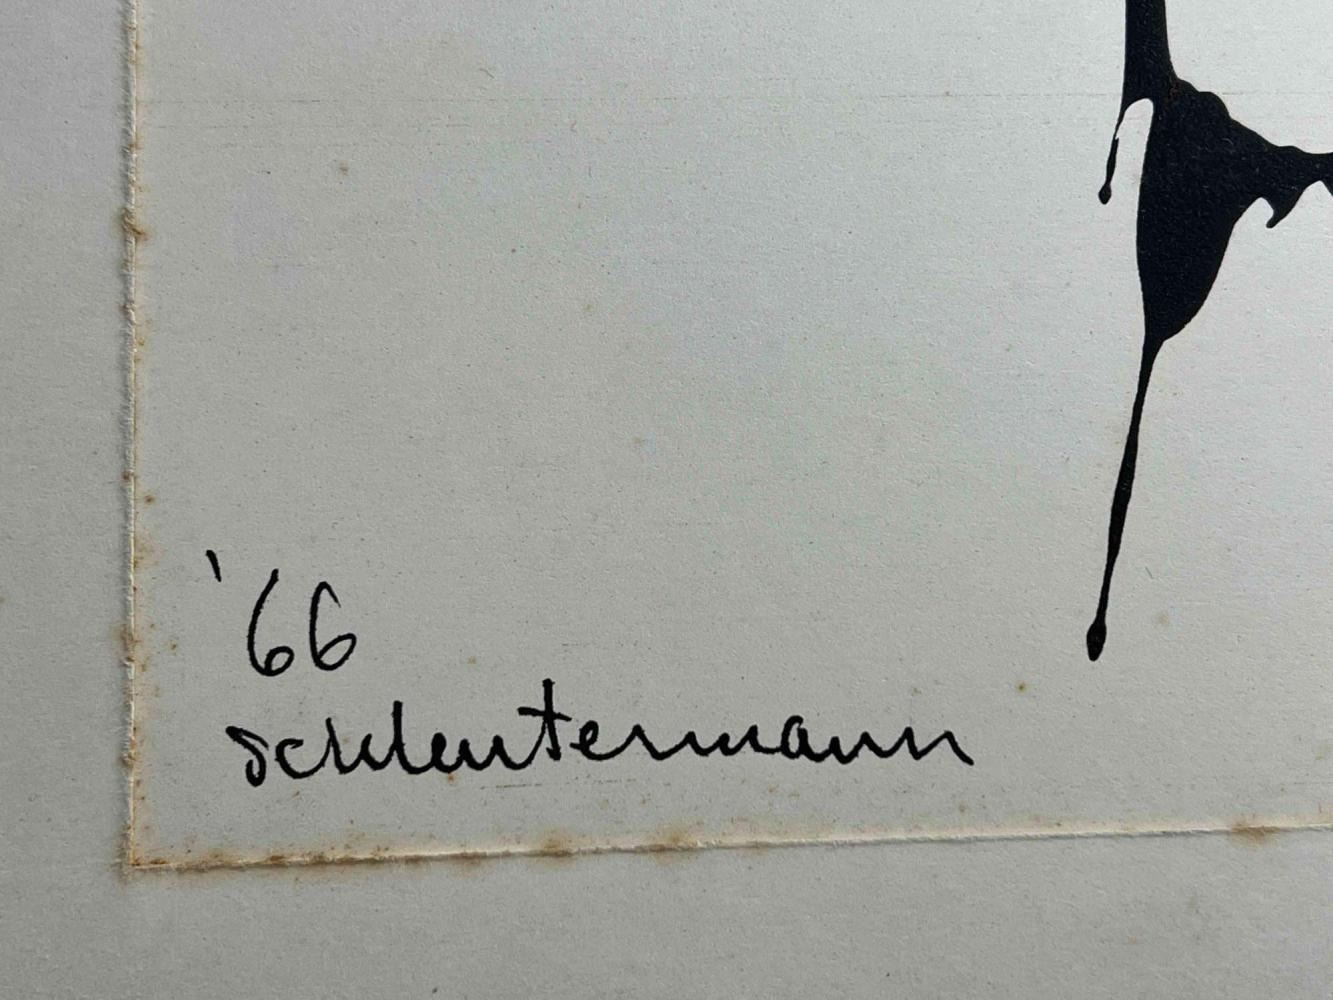 '66
schleutermann